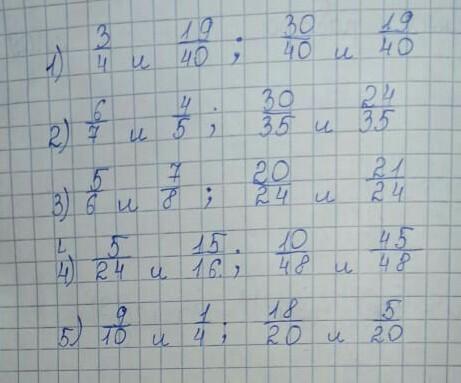 1) 3/4 и 19/40; 30/40 и 19/40
2) 6/7 и 4/5; 30/35 и 24/35
3) 5/6 и 7/8; 20/24 и 21/24
4) 5/24 и 15/16; 10/48 и 45/48
5) 9/10 и 1/4; 18/20 и 5/20